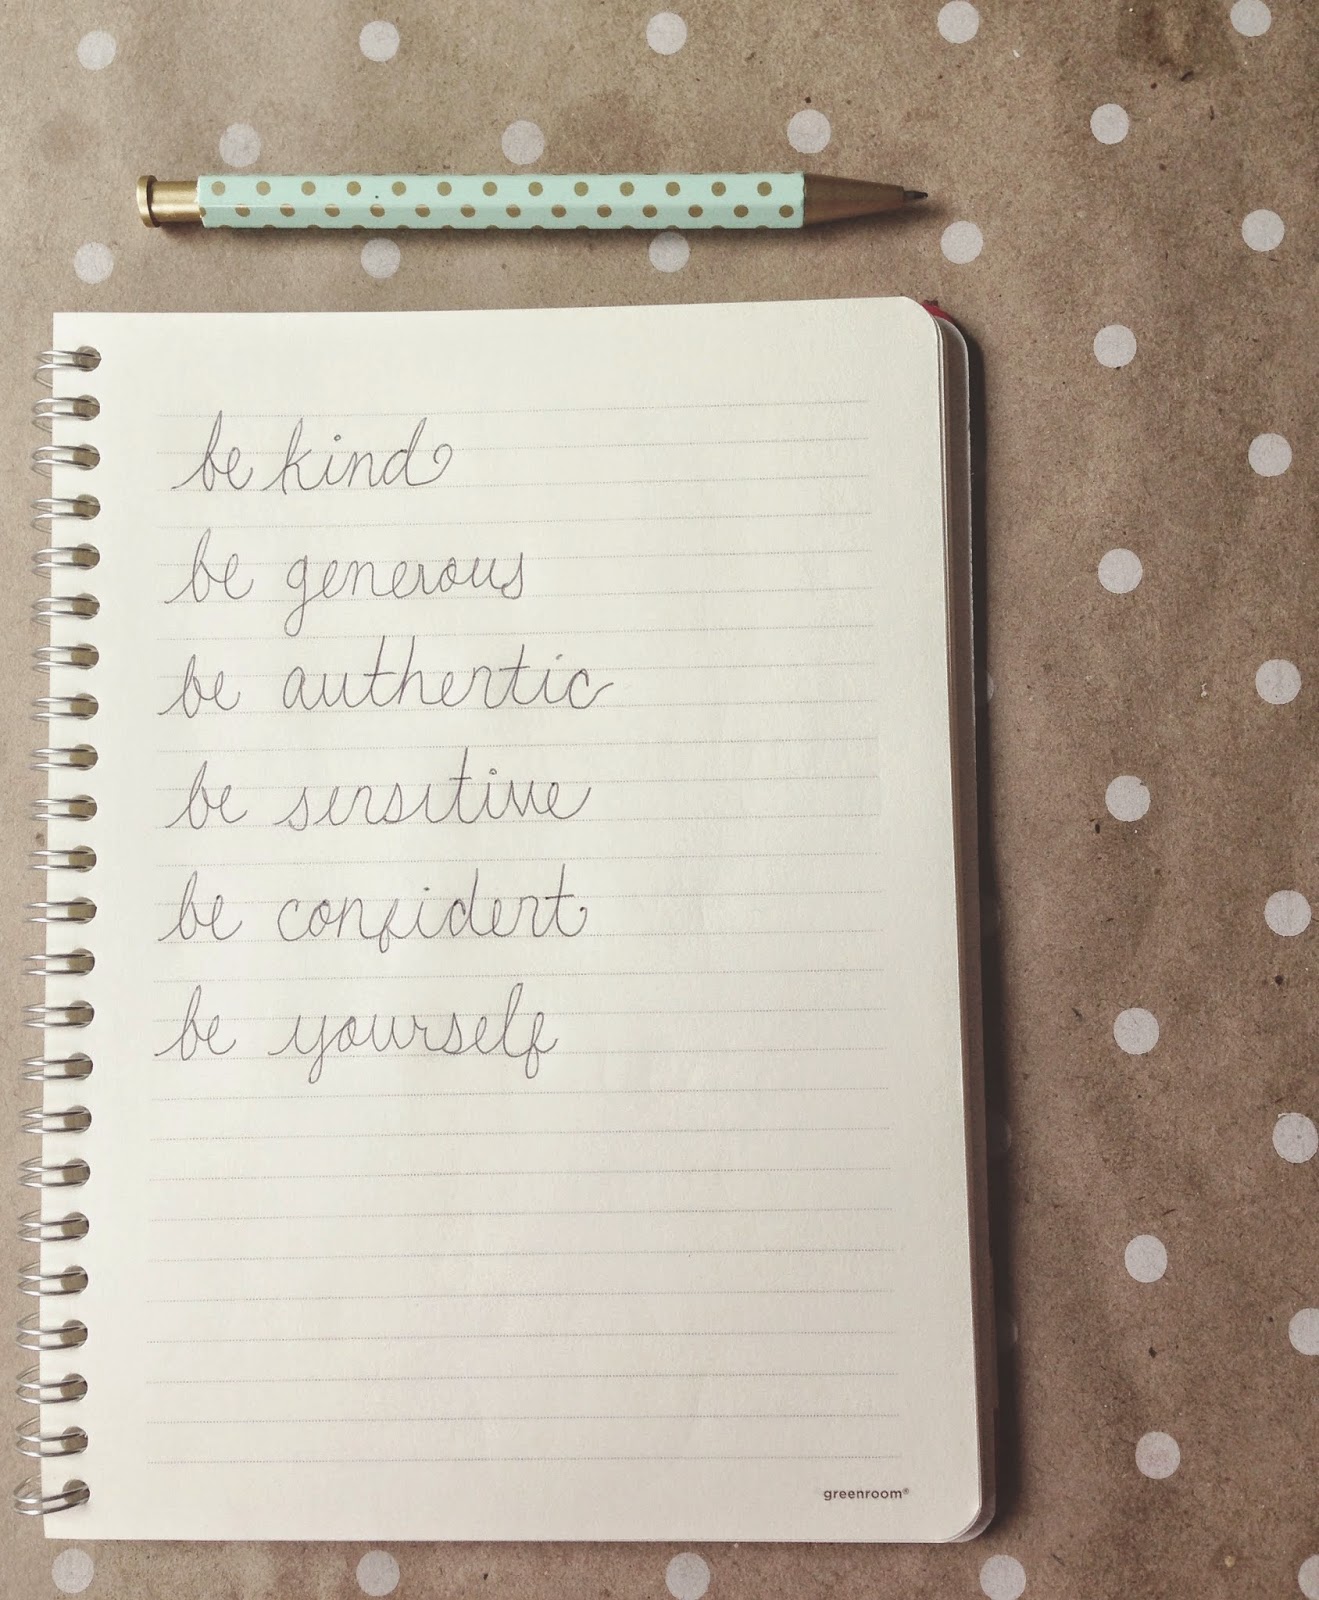 be kind
be generous
be authentic
be sensitive
be confident
be yourself
greenroom®